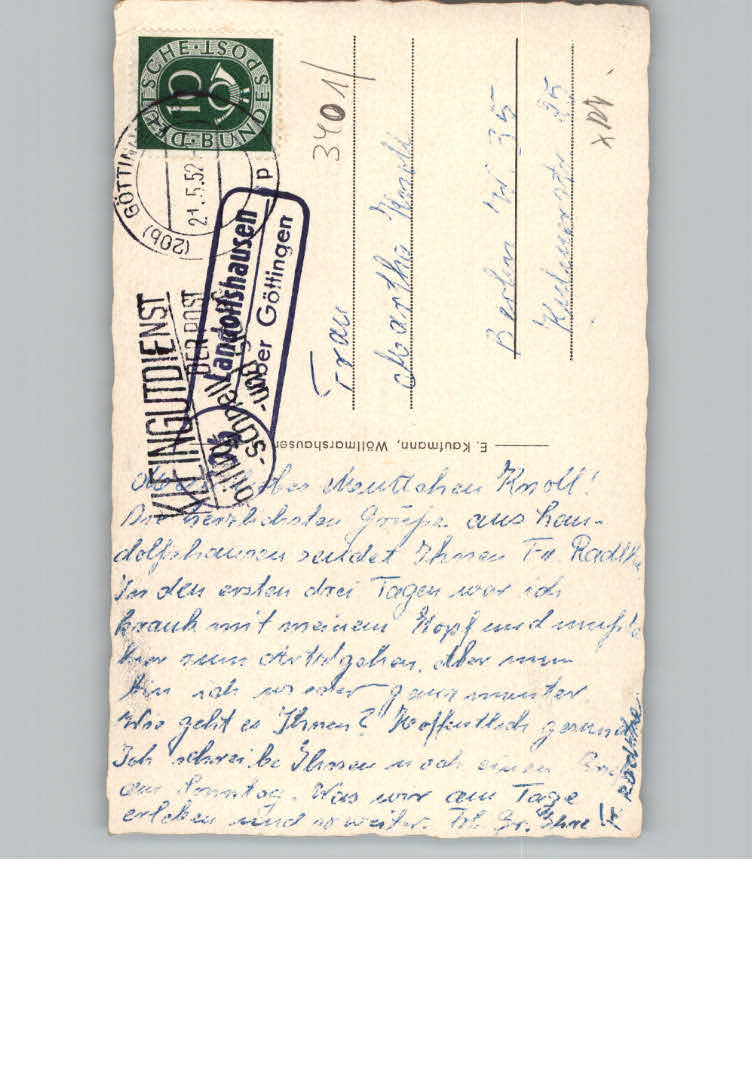 DEUTSCHE BUNDESPOST
10
(20b) GÖTTINGEN
21.5.52
p
KLEINGUTDIENST
DER POST
Schnell
Landolfshausen
über Göttingen
3401/
Frau
Martha Knoll
Berlin W. 35
35
E. Kaufmann, Wöllmarshausen
Mein liebes Muttchen Knoll!
Die herzlichsten Grüße aus Lan-
dolfshausen sendet Ihnen Fr. Radtke
In den ersten drei Tagen war ich
krank mit meinem Kopf und mußte
hier zum Arzt gehen. Aber nun
bin ich wieder ganz munter.
Wie geht es Ihnen? Hoffentlich gesund
Ich schreibe Ihnen noch einen
am Sonntag. Was wir am Tage
erleben und so weiter. Hl. Gr. Ihre Fr. Radtke